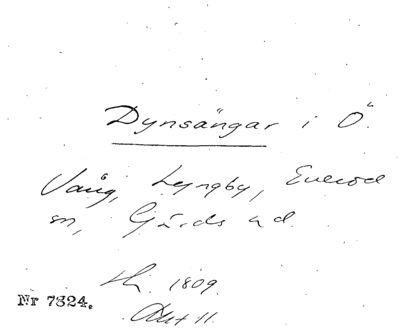 Dynsängar i Ö.
Vång, Lyngby, Everöd
sn, Gärds hd.
1809.
Nr 7324.
11.